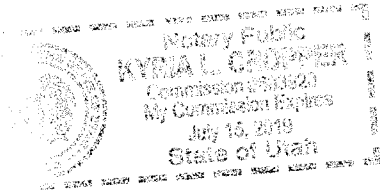 Notary Public
KYRIA L.
Commission
My Commission Expires
July 15, 2019
State of Utah